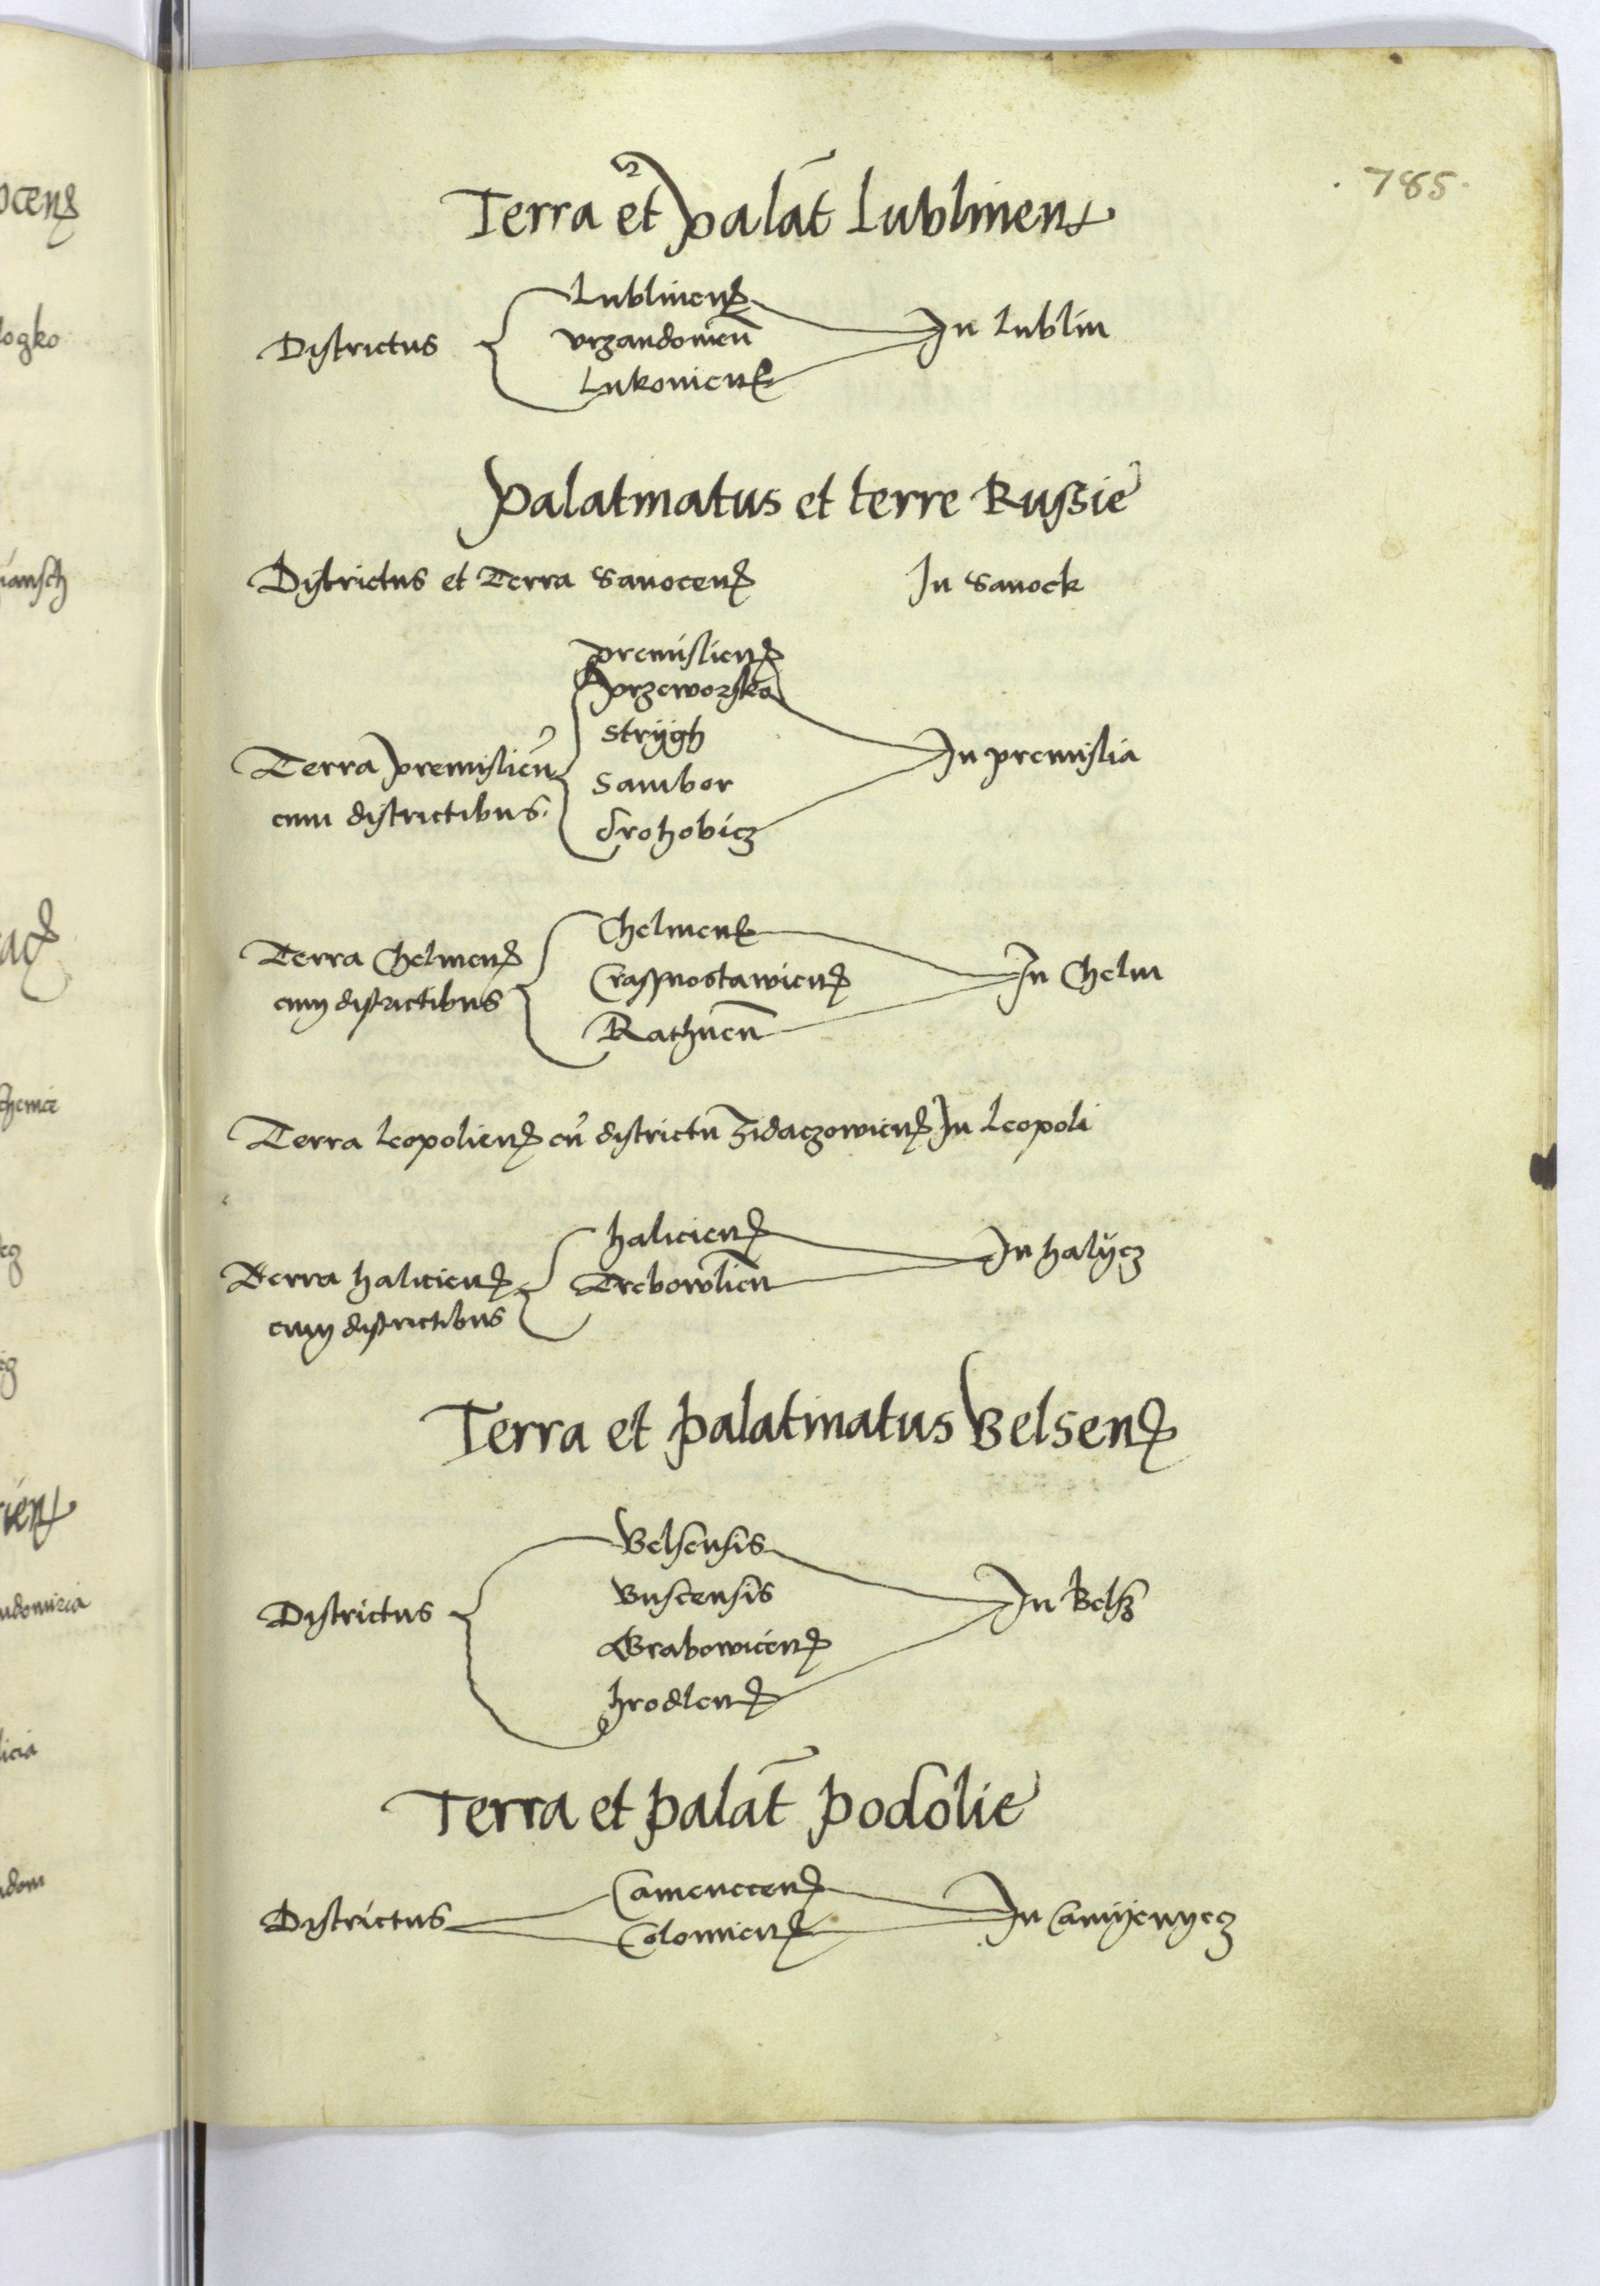 785
Terra et palat̄ Lublinen
Districtus
Lublinen
vrzandowień
Lukowien
In Lublin
Palatinatus et terre Russie
Districtus et Terra Sanocen In Sanock
Terra premislien
cum districtibus.
premislien
przeworsko
strÿgh
Sambor
drohobicz
In premislia
Terra Chelmen
cum districtibus
Chelmen
Crassnostawien
Rathneń
In Chelm
Terra Leopolien cū districtu Zidaczowien In Leopoli
Terra halicien
cum districtibus
halicien
Trebowlień
In halÿcz
Terra et palatinatus Belsen
Districtus
Belsensis
Buscensis
Grabowicen
hrodlen
In Belsz
Terra et palat̄ podolie
Districtus
Camenecen
Colomien
In Camÿenyecz